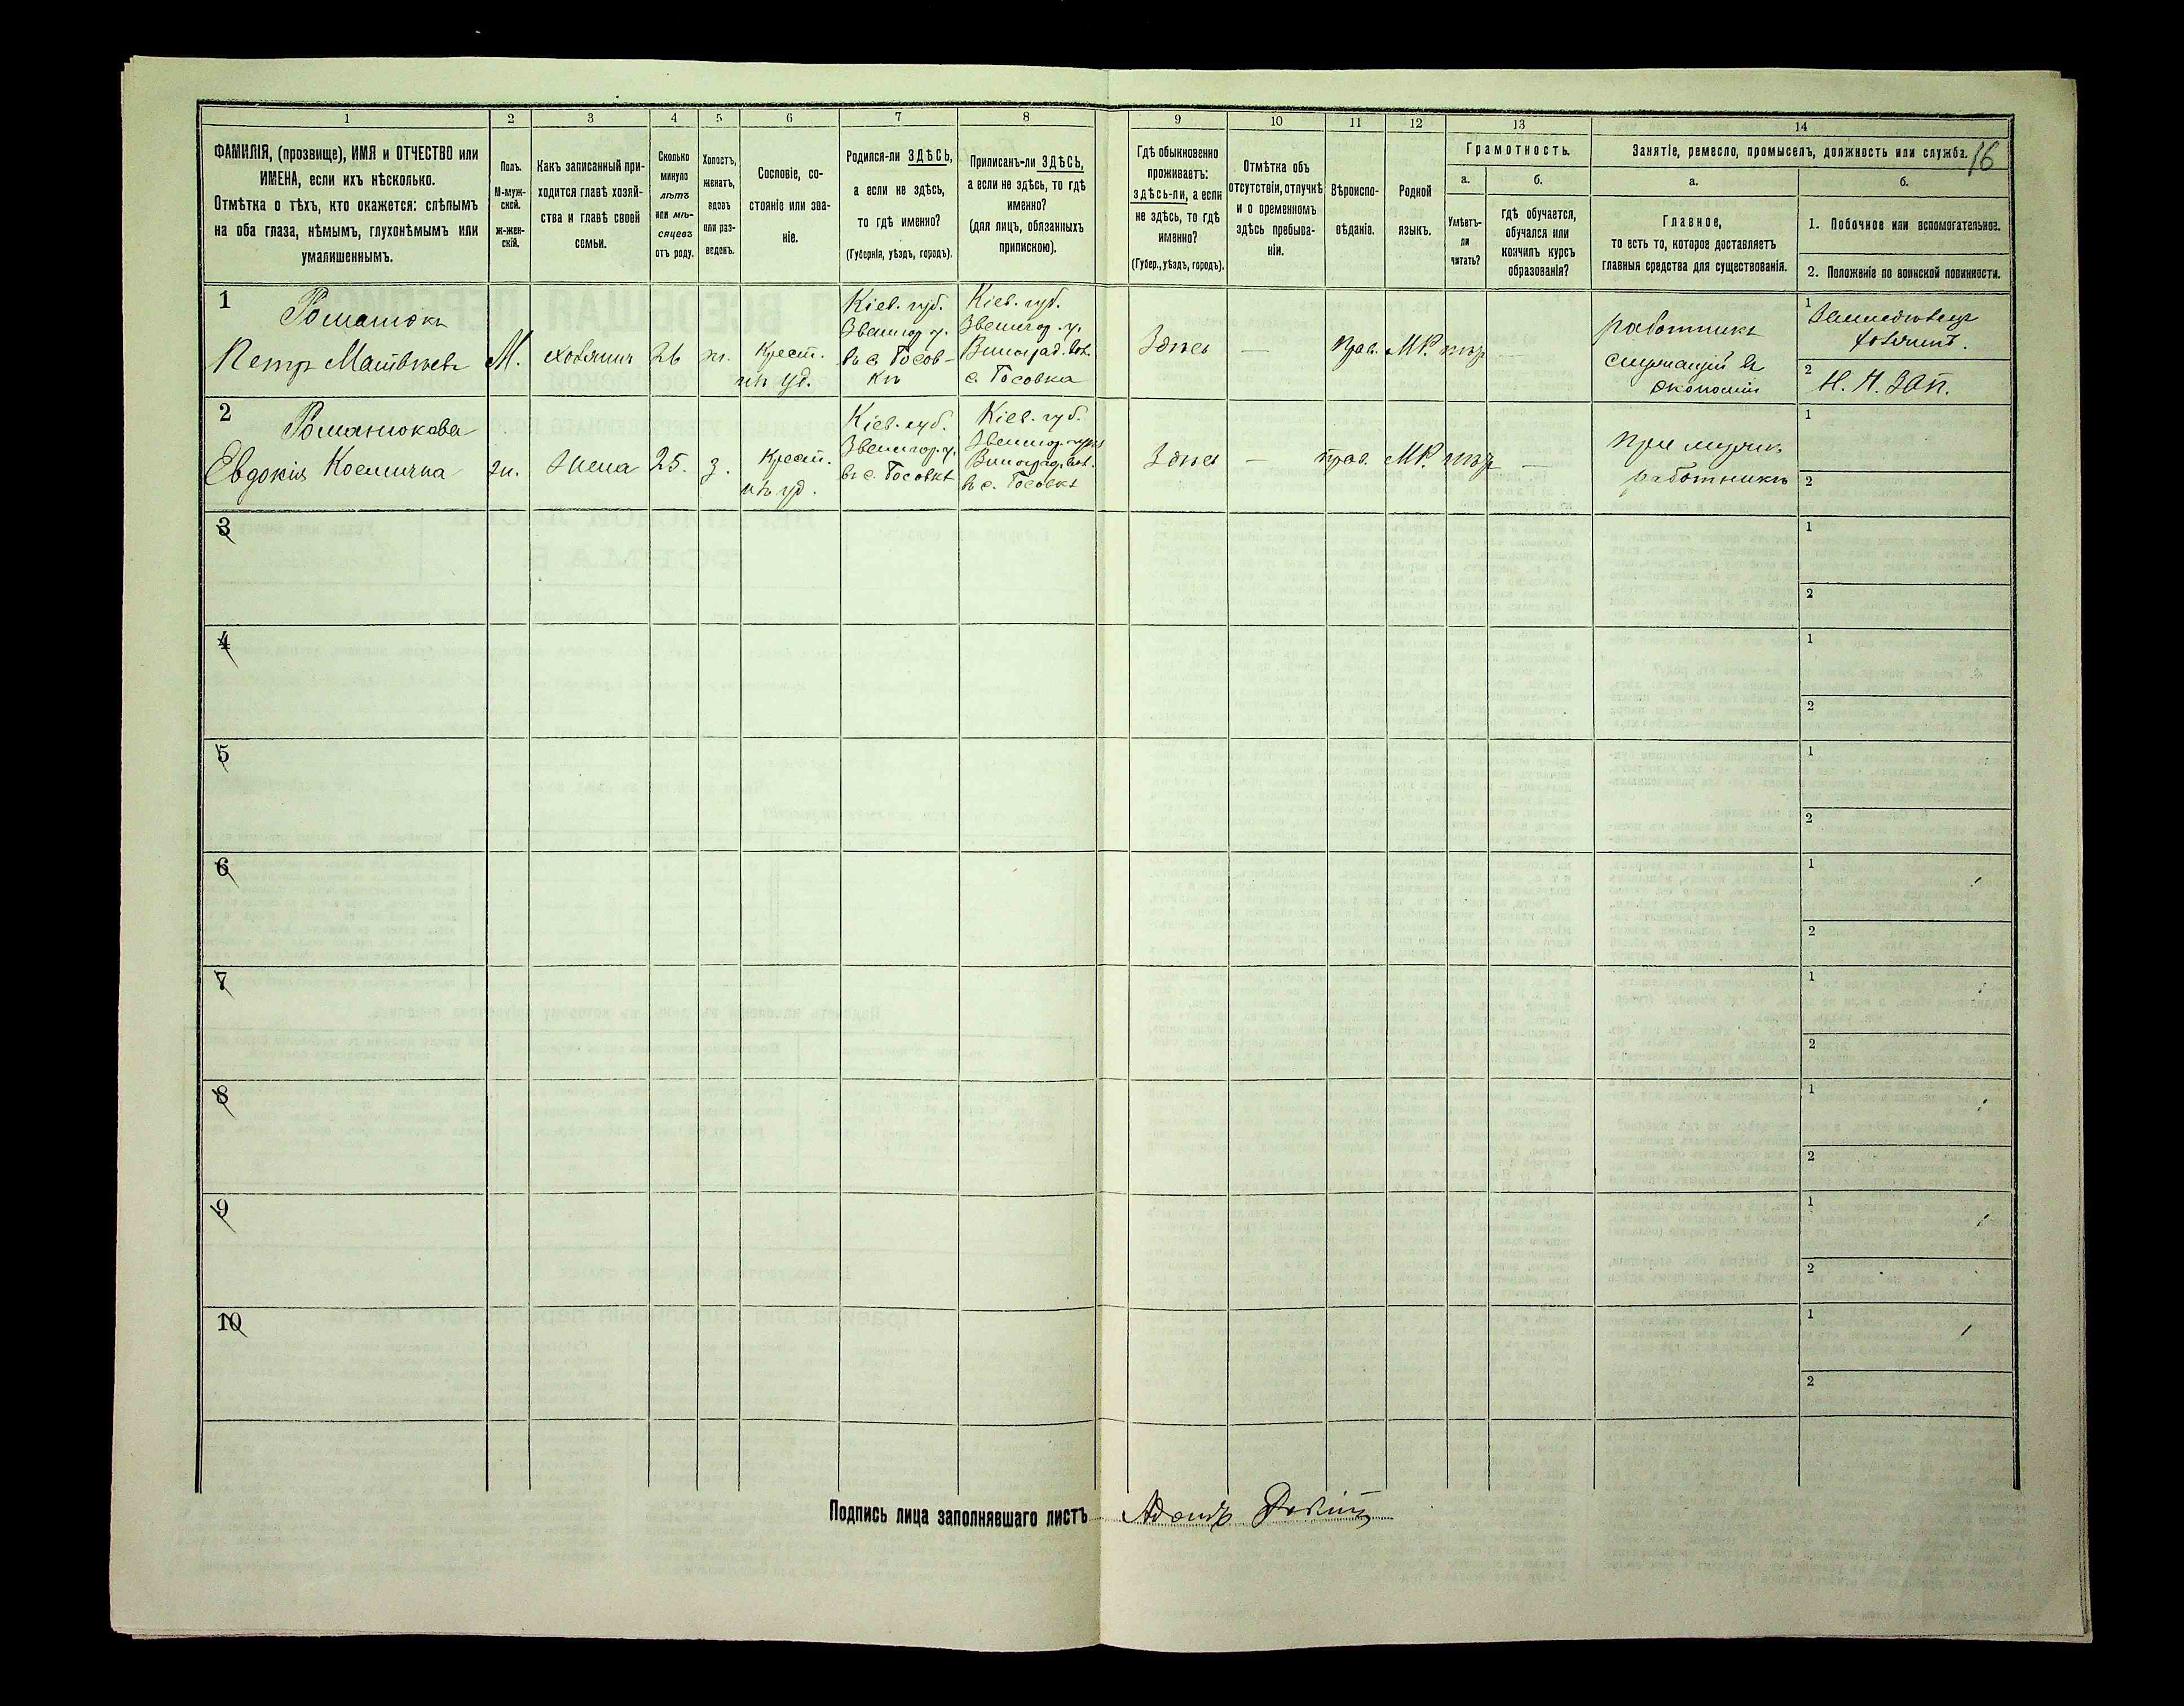 1 2 3 4 5 6 7 8 9 10 11 12 13 14
16
ФАМИЛІЯ, (прозвище), ИМЯ и ОТЧЕСТВО или
ИМЕНА, если ихъ нѣсколько.
Отмѣтка о тѣхъ, кто окажется: слѣпымъ
на оба глаза, нѣмымъ, глухонѣмымъ или
умалишеннымъ.
Полъ.
М-муж-
ской.
ж-жен-
скій.
Какъ записанный при-
ходится главѣ хозяй-
ства и главѣ своей
семьи.
Сколько
минуло
лѣтъ
или мѣ-
сяцевъ
отъ роду.
Холостъ,
женатъ,
вдовъ
или раз-
веденъ.
Сословіе, со-
стояніе или зва-
ніе.
Родился-ли ЗДѢСЬ,
а если не здѣсь,
то гдѣ именно?
(Губернія, уѣздъ, городъ).
Приписанъ-ли ЗДѢСЬ,
а если не здѣсь, то гдѣ
именно?
(для лицъ, обязанныхъ
припискою).
Гдѣ обыкновенно
проживаетъ:
здѣсь-ли, а если
не здѣсь, то гдѣ
именно?
(Губер., уѣздъ, городъ).
Отмѣтка объ
отсутствіи, отлучкѣ
и о временномъ
здѣсь пребыва-
ніи.
Вѣроиспо-
вѣданіе.
Родной
языкъ.
Грамотность.
а.
Умѣетъ-
ли
читать?
б.
гдѣ обучается,
обучался или
кончилъ курсъ
образованія?
Занятіе, ремесло, промыселъ, должность или служба.
а.
Главное,
то есть то, которое доставляетъ
главныя средства для существованія.
б.
1. Побочное или вспомогательное.
2. Положеніе по воинской повинности.
1
Романюкъ
Петръ Матвѣевъ
М.
хозяинъ
26
ж.
Крест.
Кіев. губ.
Звенигор. у.
въ с. Босов-
кѣ
Кіев. губ.
Звенигор. у.
Виноград. вол.
с. Босовка
Здѣсь
—
прав.
МР.
—
работникъ
служащій въ
экономіи
1
2
2
Романюкова
Евдокія
ж.
Жена
25.
з.
Крест.
Кіев. губ.
Звенигор. у.
въ с. Босовкѣ
Кіев. губ.
Виноград. вол.
въ с. Босовкѣ
Здѣсь
—
прав.
МР.
—
при мужѣ
работникѣ
1
2
3
1
2
4
1
2
5
1
2
6
1
2
7
1
2
8
1
2
9
1
2
10
1
2
Подпись лица заполнявшаго листъ